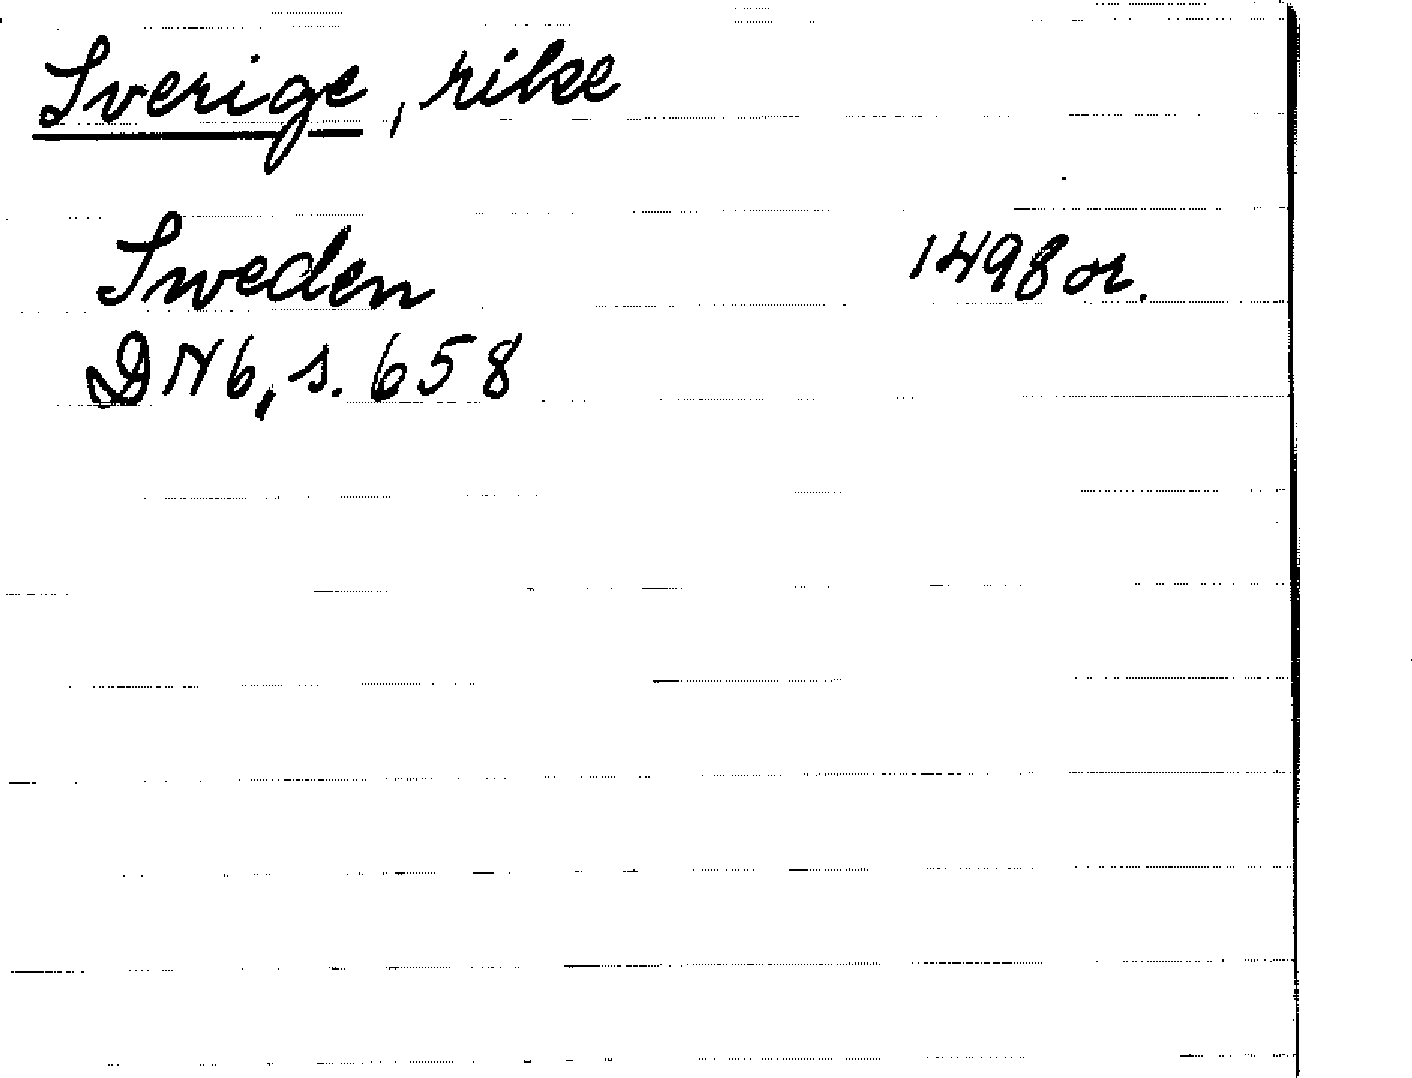 Sverige, rike
Sweden 1498 or.
DN6, s. 658